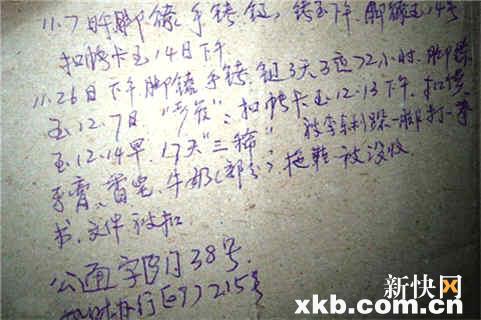 11.7日午脚镣手铐、铐至下午.脚镣至14号
扣帐卡至14日下午
11.26日下午.脚镣手铐.3天3夜72小时.脚镣
至12.7日"".扣帐卡至12.13下午.扣
至12.14早.17天"三稀".被李踩一脚打一拳
牙膏、香皂、牛奶(部分).拖鞋被没收
书.文件被扣
公通字[]38号.
行[97]215号
新快网
xkb.com.cn